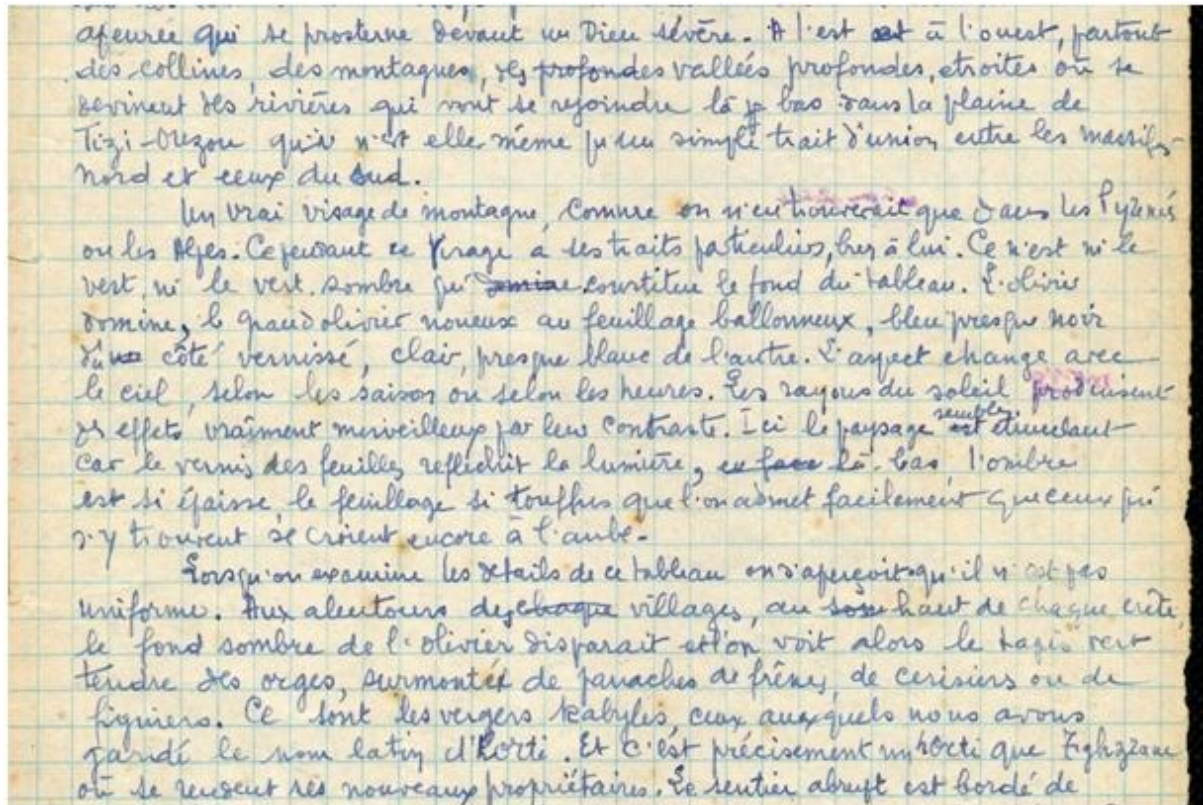 apeurée qui se prosterne devant un Dieu sévère. A l'est et à l'ouest, partout
des collines, des montagnes, des profondes vallées profondes, étroites où se
devinent des rivières qui vont se rejoindre là bas dans la plaine de
Tizi-Ouzou qui n'est elle même qu'un simple trait d'union entre les massifs
Nord et ceux du Sud.
Un vrai visage de montagne, comme on n'en trouverait que dans les Pyrénées
ou les Alpes. Cependant ce visage a ses traits particuliers, bien à lui. Ce n'est ni le
vert, ni le vert sombre qui domine constitue le fond du tableau. L'olivier
domine, le grand olivier noueux au feuillage ballonneux, bleu presque noir
d'un côté vernissé, clair, presque blanc de l'autre. L'aspect change avec
le ciel, selon les saisons ou selon les heures. Les rayons du soleil produisent
des effets vraiment merveilleux par leur contraste. Ici le paysage est semble étincelant
car le vernis des feuilles réfléchit la lumière, en face là-bas l'ombre
est si épaisse, le feuillage si touffus que l'on admet facilement que ceux qui
s'y trouvent se croient encore à l'aube.
Lorsqu'on examine les détails de ce tableau on s'aperçoit qu'il n'est pas
uniforme. Aux alentours des chaque villages, au haut de chaque crête
le fond sombre de l'olivier disparait et l'on voit alors le tapis vert
tendre des orges, surmontés de panaches de frênes, de cerisiers ou de
figuiers. Ce sont les vergers kabyles, ceux auxquels nous avons
gardé le nom latin d'horti. Et c'est précisement un horti que Tighezrane
où se rendent ses nouveaux propriétaires. Le sentier abrupt est bordé de